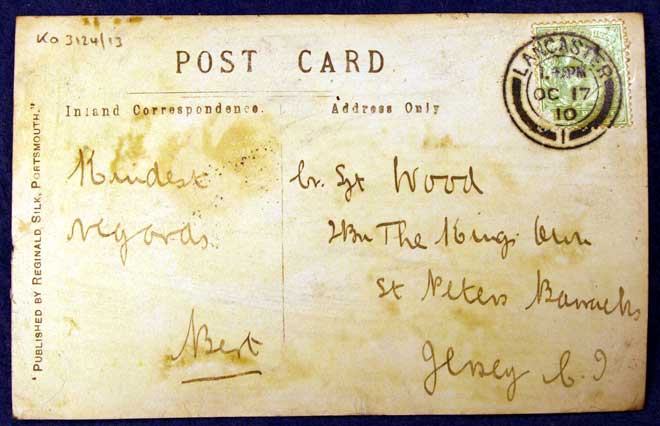 KO 3124/13
POST CARD
Inland Correspondence.
Address Only
LANCASTER
PM
OC 17
10
1
"PUBLISHED BY REGINALD SILK, PORTSMOUTH."
Kindest
regards
Bert
Cr. Sgt Wood
2Bn The Kings Own
St Peters Barracks
Jersey C. I